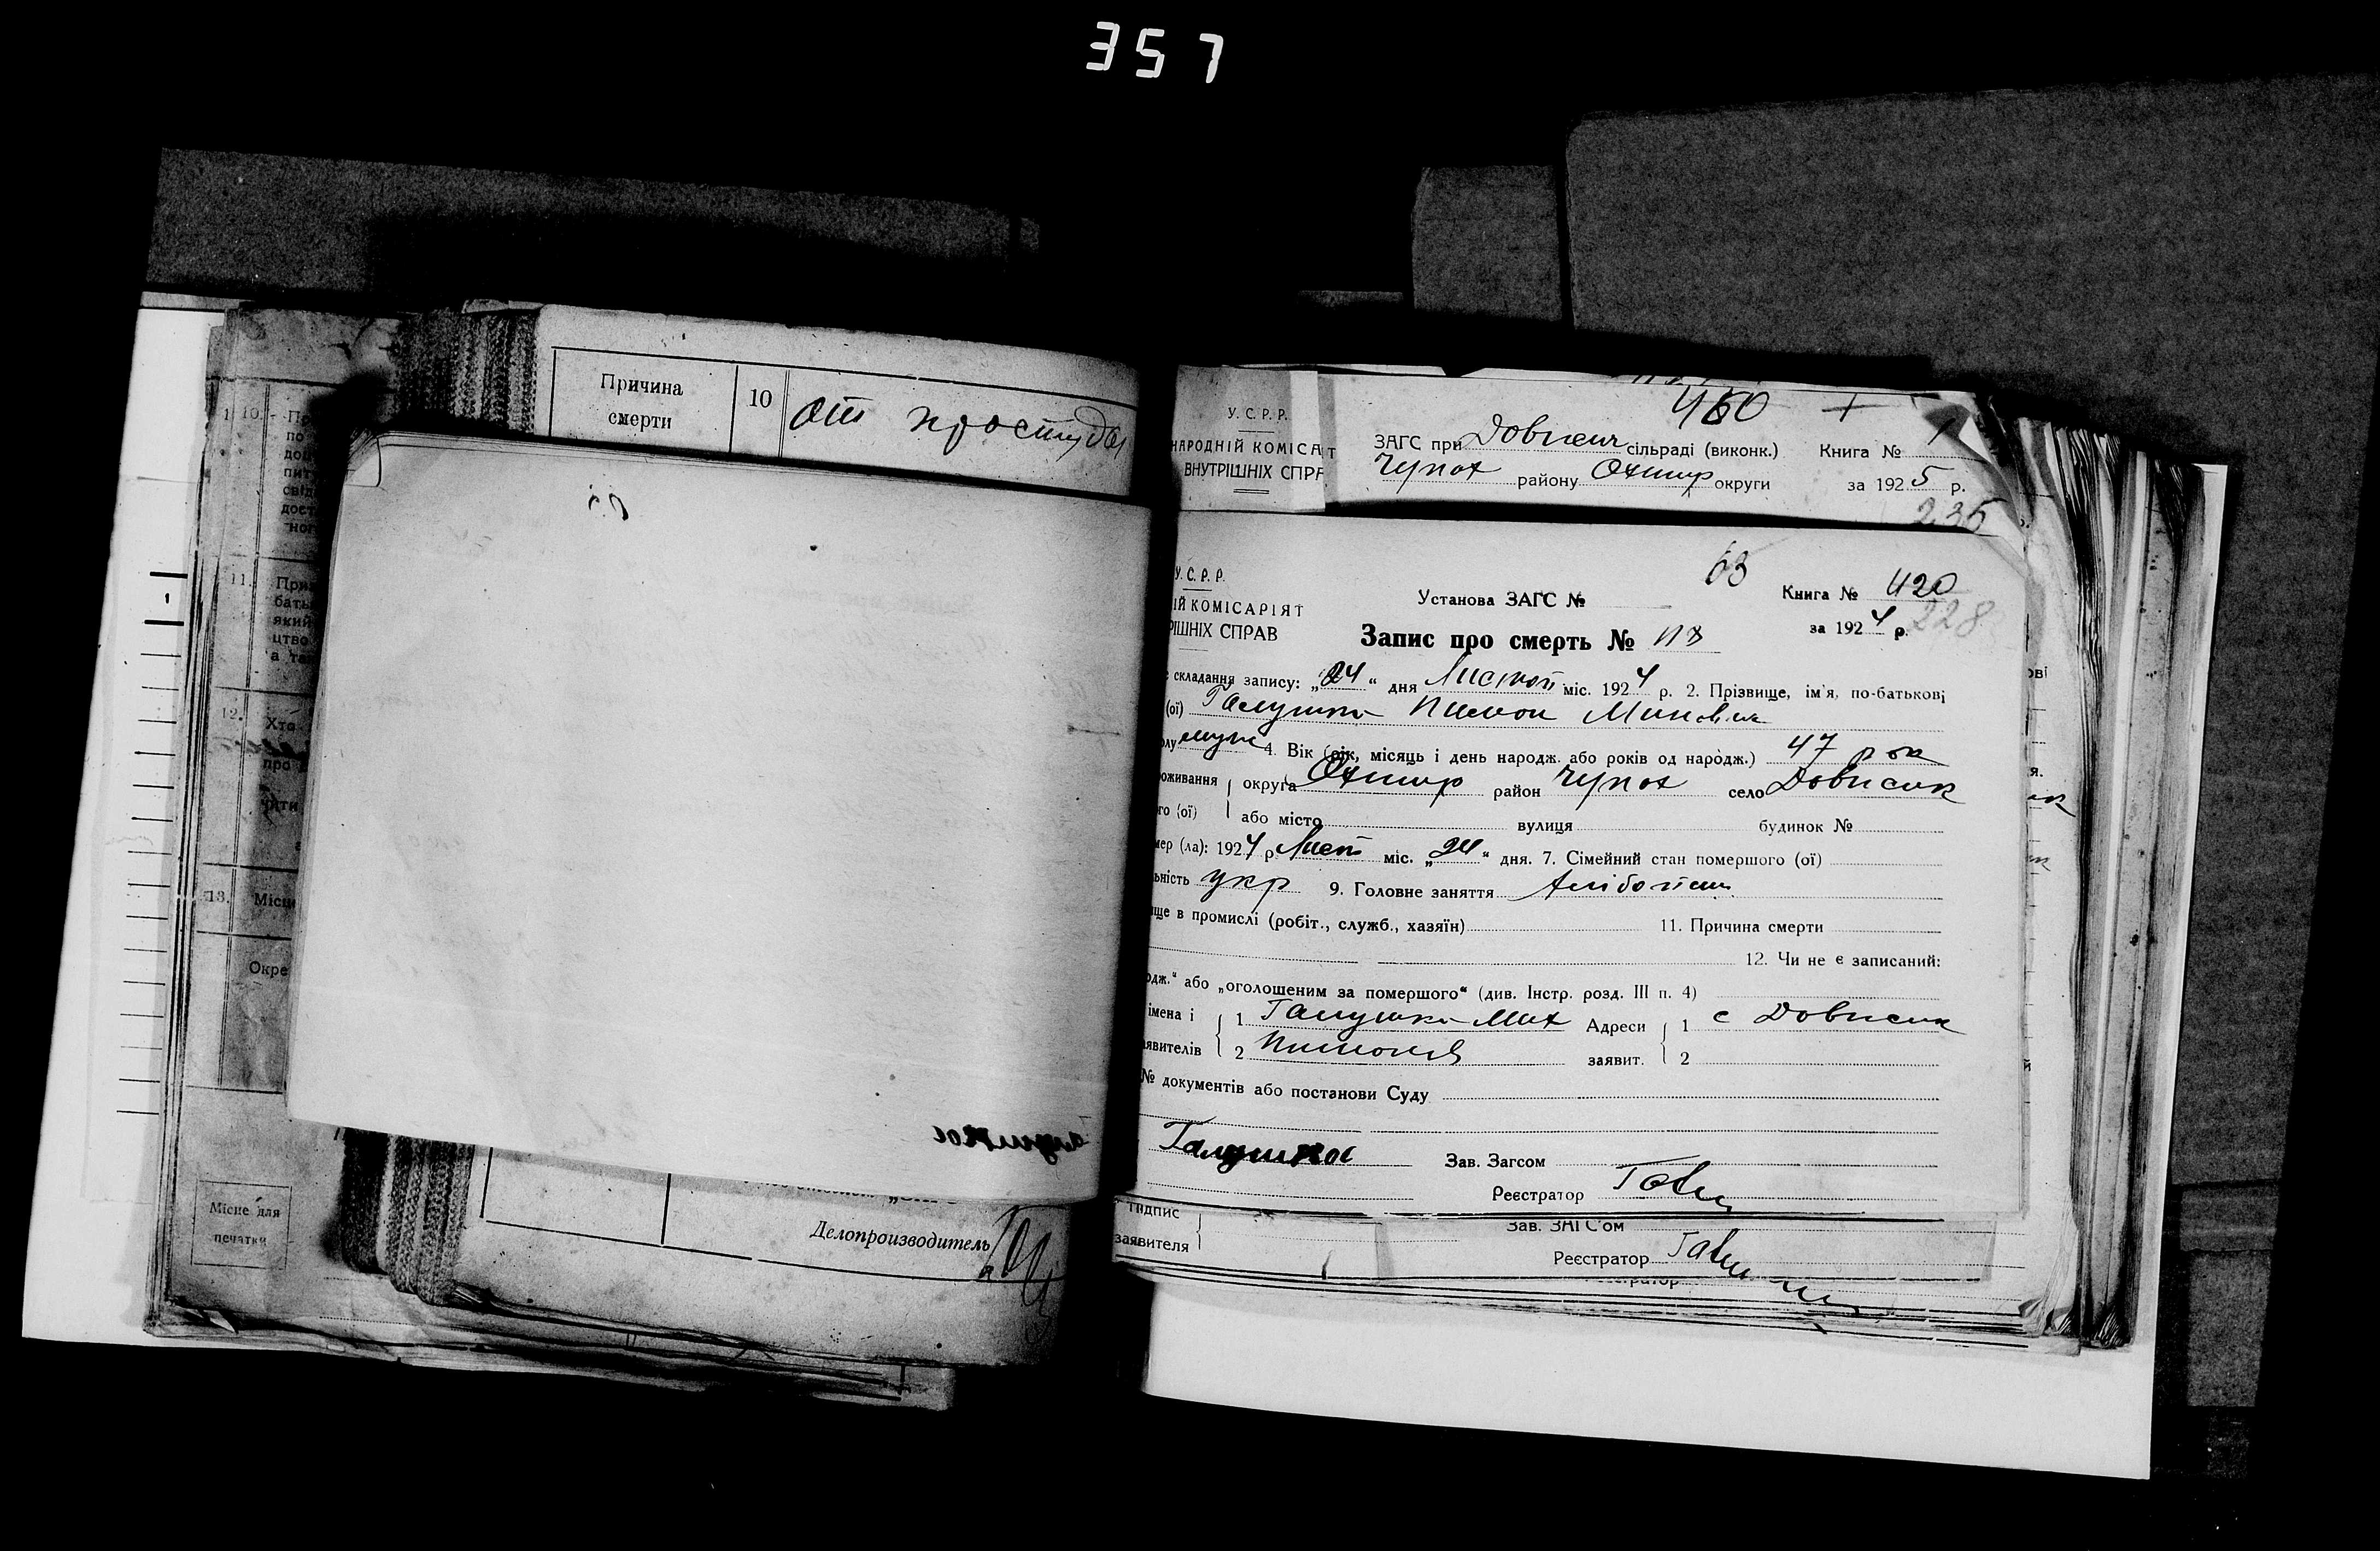 357
1 10. П
по
дов
пит
свід
дост
ног
11. При
бать
який
цтво
а та
12. Хто
про
ити
13. Місце
Окре
Місце для
печатки
Причина
смерти
10
от простуды
Делопроизводитель
У. С. Р. Р.
НАРОДНІЙ КОМІСАТ
ВНУТРІШНІХ СПР
460 +
ЗАГС при Довжен сільраді (виконк.) Книга № 1
Чупах району Охтир округи за 1925 р.
235
У. С. Р. Р.
ІЙ КОМІСАРІЯТ
РІШНІХ СПРАВ
63
Установа ЗАГС № Книга № 420
за 1924 р. 228
Запис про смерть №
складання запису: „24“ дня Листоп міс. 1924 р. 2. Прізвище, ім'я, по-батькові
(ої) Галушка Пимон
лу муж 4. Вік (рік, місяць і день народж. або років од народж.) 47 рок
оживання округа Охтир район Чупах село Довжик
го (ої) або місто вулиця будинок №
мер (ла): 1924 р. Лист міс. „24“ дня. 7. Сімейний стан помершого (ої)
ьність укр 9. Головне заняття Хлібопаш
ище в промислі (робіт., служб., хазяїн) 11. Причина смерти
12. Чи не є записаний:
одж.“ або „оголошеним за помершого“ (див. Інстр. розд. III п. 4)
імена і 1 Галушка Мих Адреси 1 с Довжик
явителів 2 Пимонов заявит. 2
№ документів або постанови Суду
Галушка Зав. Загсом
Реєстратор
Підпис
заявителя
Зав. ЗАГС'ом
Реєстратор